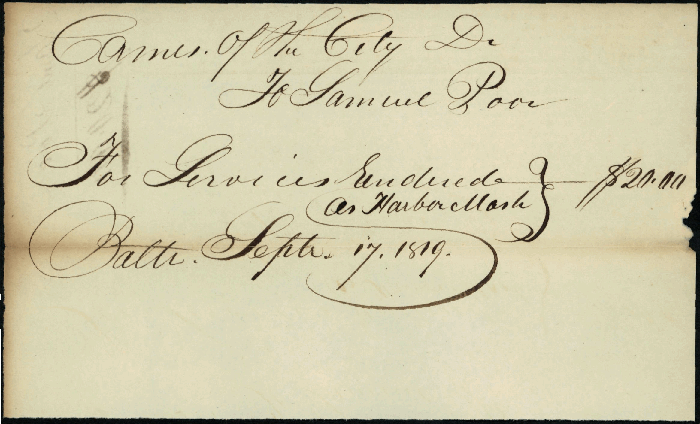 Comrs. Of the City Dr
To Samuel Poor
For Services Rendered $20.00
as Harbor Mastr
Balto. Septr. 17. 1819.